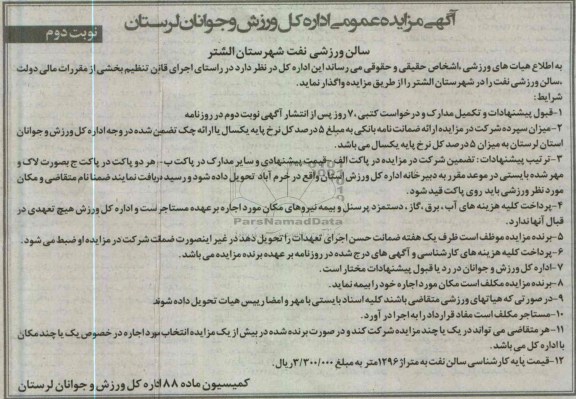 آگهی مزایده عمومی اداره کل ورزش و جوانان لرستان
نوبت دوم
سالن ورزشی نفت شهرستان الشتر
به اطلاع هیات های ورزشی ،اشخاص حقیقی و حقوقی می رساند این اداره کل در نظر دارد در راستای اجرای قانون تنظیم بخشی از مقررات مالی دولت
،سالن ورزشی نفت را در شهرستان الشتر را از طریق مزایده واگذار نماید.
شرایط:
۱-قبول پیشنهادات و تکمیل مدارک و درخواست کتبی ،۷ روز پس از انتشار آگهی نوبت دوم در روزنامه
۲-میزان سپرده شرکت در مزایده ارائه ضمانت نامه بانکی به مبلغ ۵ درصد کل نرخ پایه یکسال یا ارائه چک تضمین شده در وجه اداره کل ورزش و جوانان
استان لرستان به میزان ۵ درصد کل نرخ پایه یکسال می باشد.
۳-ترتیب پیشنهادات: تضمین شرکت در مزایده در پاکت الف -قیمت پیشنهادی و سایر مدارک در پاکت ب- هر دو پاکت در پاکت ج بصورت لاک و
مهر شده بایستی در موعد مقرر به دبیرخانه اداره کل ورزش استان واقع در خرم آباد تحویل داده شود و رسید دریافت نمایند ضمنا نام متقاضی و مکان
مورد نظر ورزشی باید روی پاکت قید شود.
۴-پرداخت کلیه هزینه های آب ، برق ،گاز ، دستمزد پرسنل و بیمه نیروهای مکان مورد اجاره بر عهده مستاجر است و اداره کل ورزش هیچ تعهدی در
قبال آنها ندارد.
۵-برنده مزایده موظف است ظرف یک هفته ضمانت حسن اجرای تعهدات را تحویل دهد در غیر اینصورت ضمانت شرکت در مزایده او ضبط می شود.
۶-پرداخت کلیه هزینه های کارشناسی و آگهی های درج شده در روزنامه بر عهده برنده مزایده می باشد.
۷-اداره کل ورزش و جوانان در رد یا قبول پیشنهادات مختار است.
۸-برنده مزایده مکلف است مکان مورد اجاره خود را بیمه نماید.
۹-در صورتی که هیاتهای ورزشی متقاضی باشند کلیه اسناد بایستی با مهر و امضا رییس هیات تحویل داده شوند
۱۰-مستاجر مکلف است مفاد قرارداد را به اجرا در آورد.
۱۱-هر متقاضی می تواند در یک یا چند مزایده شرکت کند و در صورت برنده شده در بیش از یک مزایده انتخاب مورد اجاره در خصوص یک یا چند مکان
با اداره کل می باشد.
۱۲-قیمت پایه کارشناسی سالن نفت به متراژ ۱۲۹۶متر به مبلغ ۳/۳۰۰/۰۰۰ریال.
کمیسیون ماده ۸۸ اداره کل ورزش و جوانان لرستان
ParsNamadData